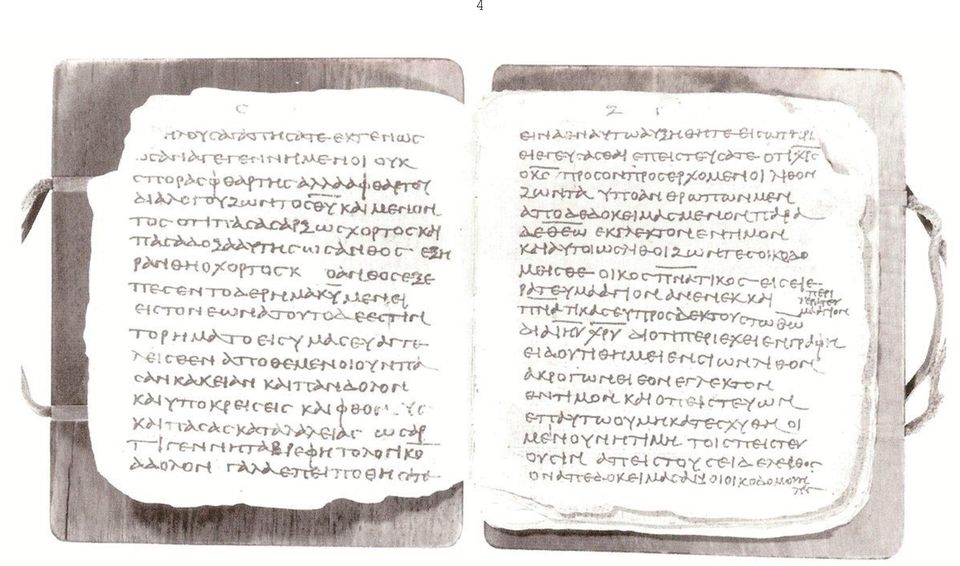 ϛ
ηλους αγαπησατε εκτενως
ως αναγεγεννημενοι ουκ
σπορας φθαρτης αλλα αφθαρτου
δια λογου ζωντος θυ και μενον
τος οτι πασα σαρξ ως χορτος και
πασα δοξα αυτης ως ανθος εξη
ρανθη ο χορτος κ ο ανθος εξε
πεσεν το δε ρημα κυ μενει
εις τον εωνα τουτο δε εστιν
το ρημα το εις υμας ευαγγε
λεισθεν αποθεμενοι ουν πα
σαν κακειαν και παν δολον
και υποκρεισεις και
και πασας καταλαλειας ως αρ
τιγεννητα βρεφη το λογικο
αδολον γαλα επειποθησατε
ζ
εινα εν αυτω αυξηθητε εις σωτηρι
ει εγευσασθαι επειστευσατε οτι χρς
ο κς προς ον προσερχομενοι λιθον
ζωντα υπο ανθρωπων μεν
αποδεδοκειμασμενον παρα
δε θεω εκγλεκτον εντιμον
και αυτοι ως λιθοι ζωντες οικοδο
μεισθε οικος πνατικος εις ειε
ρατευμα αγιον ανενεκκαι
πνατικας ευπροσδεκτους τω θω
δια ιηυ χρυ διοτι περιεχει εν γραφη
ειδου τιθημει εν σιων λιθον
ακρογωνειεον εγλεκτον
εντιμον και ο πειστευων
επ αυτω ου μη κατεσχυθη οι
μεν ουν η τιμη τοις πειστευ
ουσιν απειστουσει δε λειθος
ον απεδοκειμασαν οι οικοδομουν
τες
4